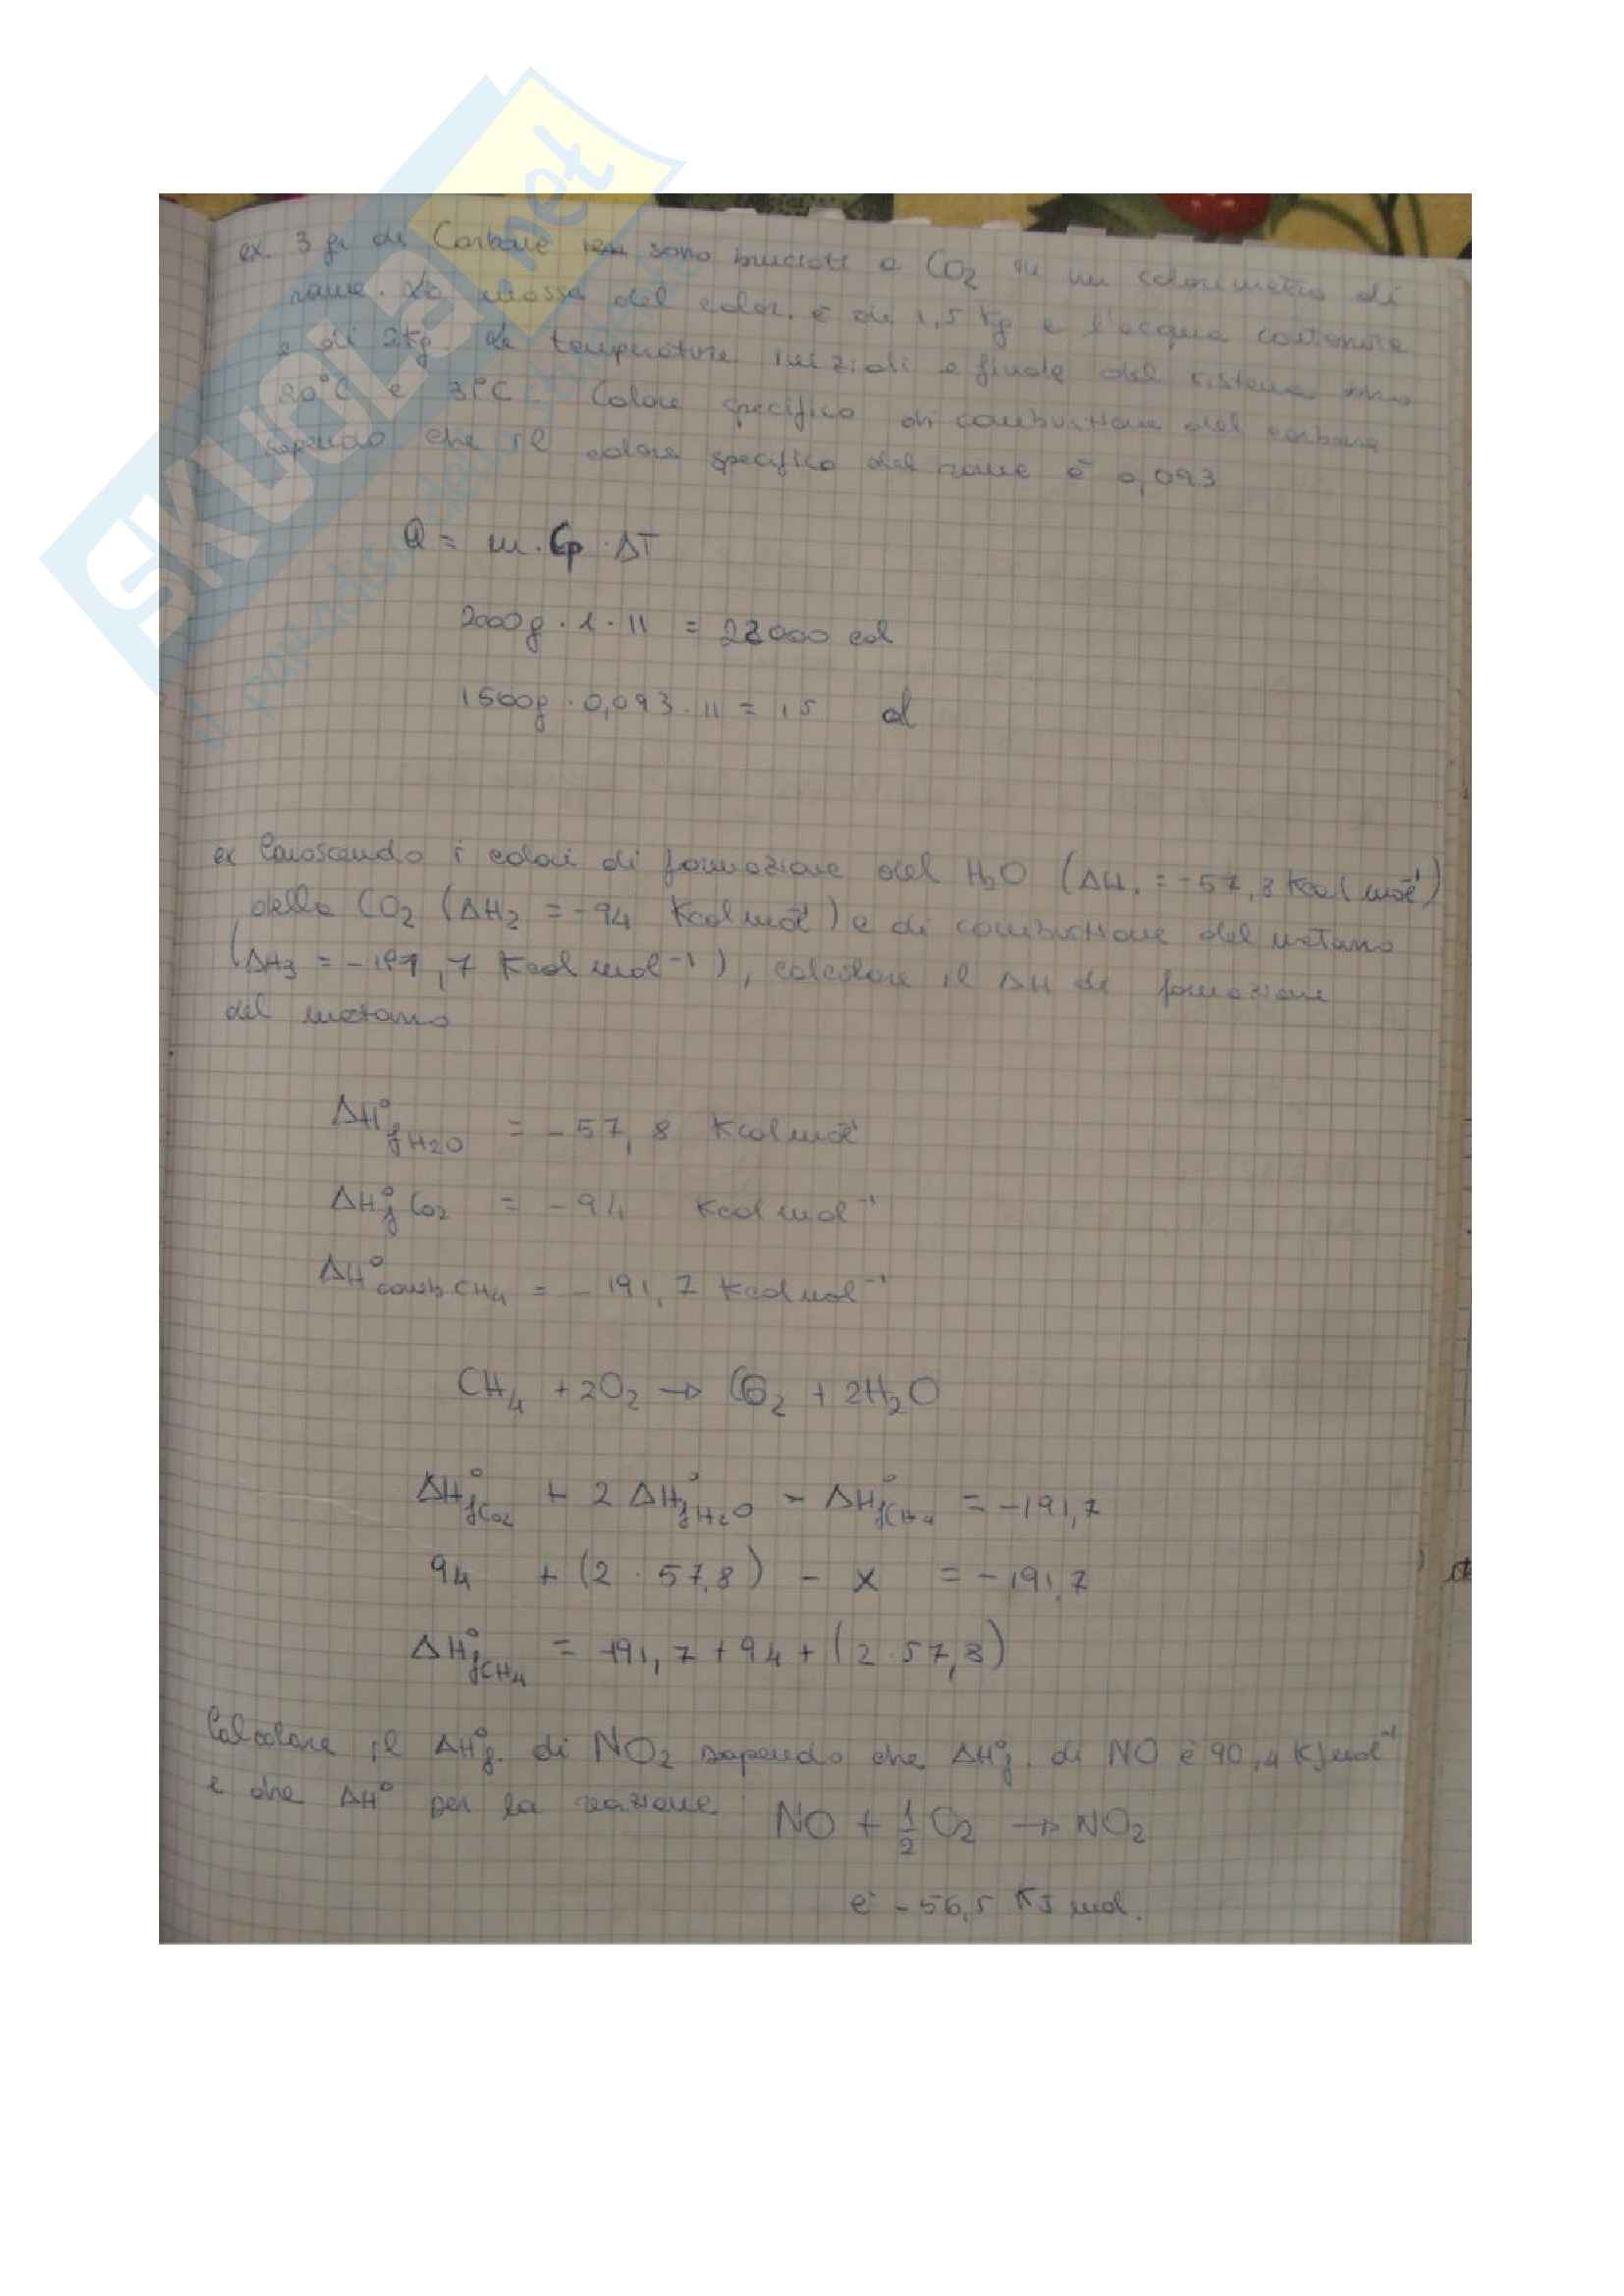 SKUOLA.net
ex. 3 gr di Carbone sono bruciati a CO2 in un calorimetro di
rame. La massa del calor. è di 1,5 Kg e l'acqua contenuta
è di 2Kg. Le temperature iniziali e finale del sistema sono
20°C e 31°C. Calore specifico di combustione del carbone
sapendo che il calore specifico del rame è 0,093
Q = m. Cp . ΔT
2000g . 1 . 11 = 22000 cal
1500g . 0,093 . 11 = 15
ex Conoscendo i calori di formazione del H2O (ΔH1 = -57,8 Kcal mol-1)
della CO2 (ΔH2 = -94 Kcal mol-1) e di combustione del metano
(ΔH3 = -191,7 Kcal mol-1), calcolare il ΔH di formazione
del metano
ΔH°f H2O = -57,8 Kcal mol-1
ΔH°f CO2 = -94 Kcal mol-1
ΔH°comb.CH4 = -191,7 Kcal mol-1
CH4 + 2O2 → CO2 + 2H2O
ΔH°f CO2 + 2 ΔH°f H2O - ΔH°f CH4 = -191,7
94 + (2 . 57,8) - x = -191,7
ΔH°f CH4 = -191,7 + 94 + (2.57,8)
Calcolare il ΔH°f. di NO2 sapendo che ΔH°f. di NO è 90,4 KJ mol-1
e che ΔH° per la reazione: NO + 1/2 O2 → NO2
è -56,5 KJ mol.